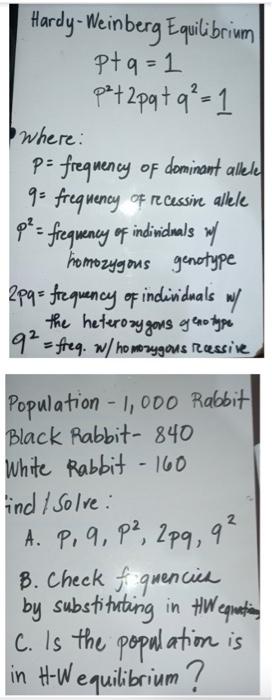 Hardy-Weinberg Equilibrium
p+q=1
p²+2pq+q²=1
where:
p= frequency of dominant allele
q= frequency of recessive allele
p²= frequency of individuals w/
homozygous genotype
2pq= frequency of individuals w/
the heterozygous genotype
q² = freq. w/ homozygous recessive
Population - 1,000 Rabbit
Black Rabbit- 840
White Rabbit - 160
Find / Solve:
A. p, q, p², 2pq, q²
B. Check frequencies
by substituting in HW equation
C. Is the population is
in H-W equilibrium?